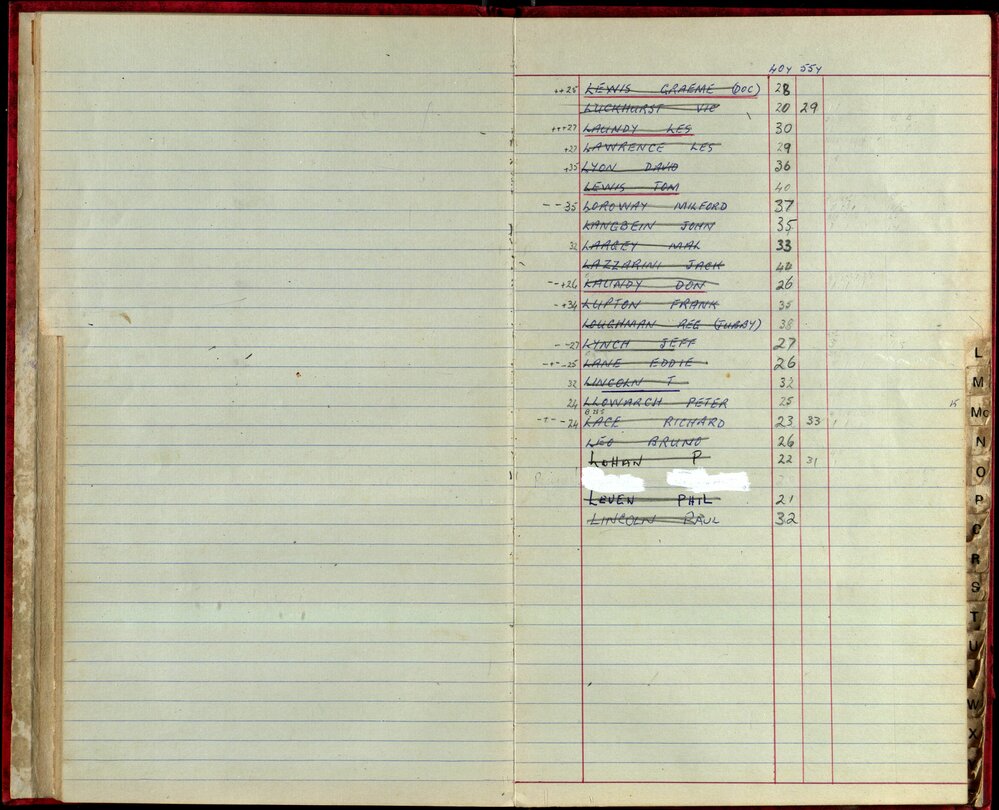 40Y 55Y
++25 LEWIS GRAEME (DOC) 28
LUCKHURST VIC 20 29
+++27 LAUNDY LES 30
+27 LAWRENCE LES 29
+35 LYON DAVID 36
LEWIS TOM 40
--35 LOROWAY MILFORD 37
LANGBEIN JOHN 35
32 LAREY MAL 33
LAZZARINI JACK 44
--+26 LAUNDY DON 26
-+34 LUPTON FRANK 35
LOUGHMAN REG (TUBBY) 38
--27 LYNCH JEFF 27
-+--25 LANE EDDIE 26
32 LINCOLN T 32
24 LLOWARCH PETER 25
-+--24 LACE RICHARD 23 33
LEO BRUNO 26
LOHAN P 22 31
LEVEN PHIL 21
LINCOLN PAUL 32
L
M
Mc
N
O
P
R
S
T
U
W
X